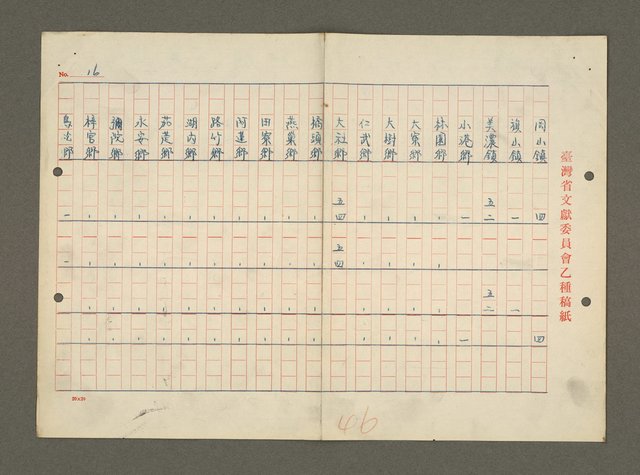 臺灣省文獻委員會乙種稿紙
No. 16
岡山鎮 四 四
旗山鎮 一 一
美濃鎮 五二 五二
小港鄉 一 一
林園鄉
大寮鄉
大樹鄉
仁武鄉
大社鄉 五四 五四
橋頭鄉
燕巢鄉
田寮鄉
阿蓮鄉
路竹鄉
湖內鄉
茄萣鄉
永安鄉
彌陀鄉
梓官鄉
鳥松鄉 一 一
20×20
46